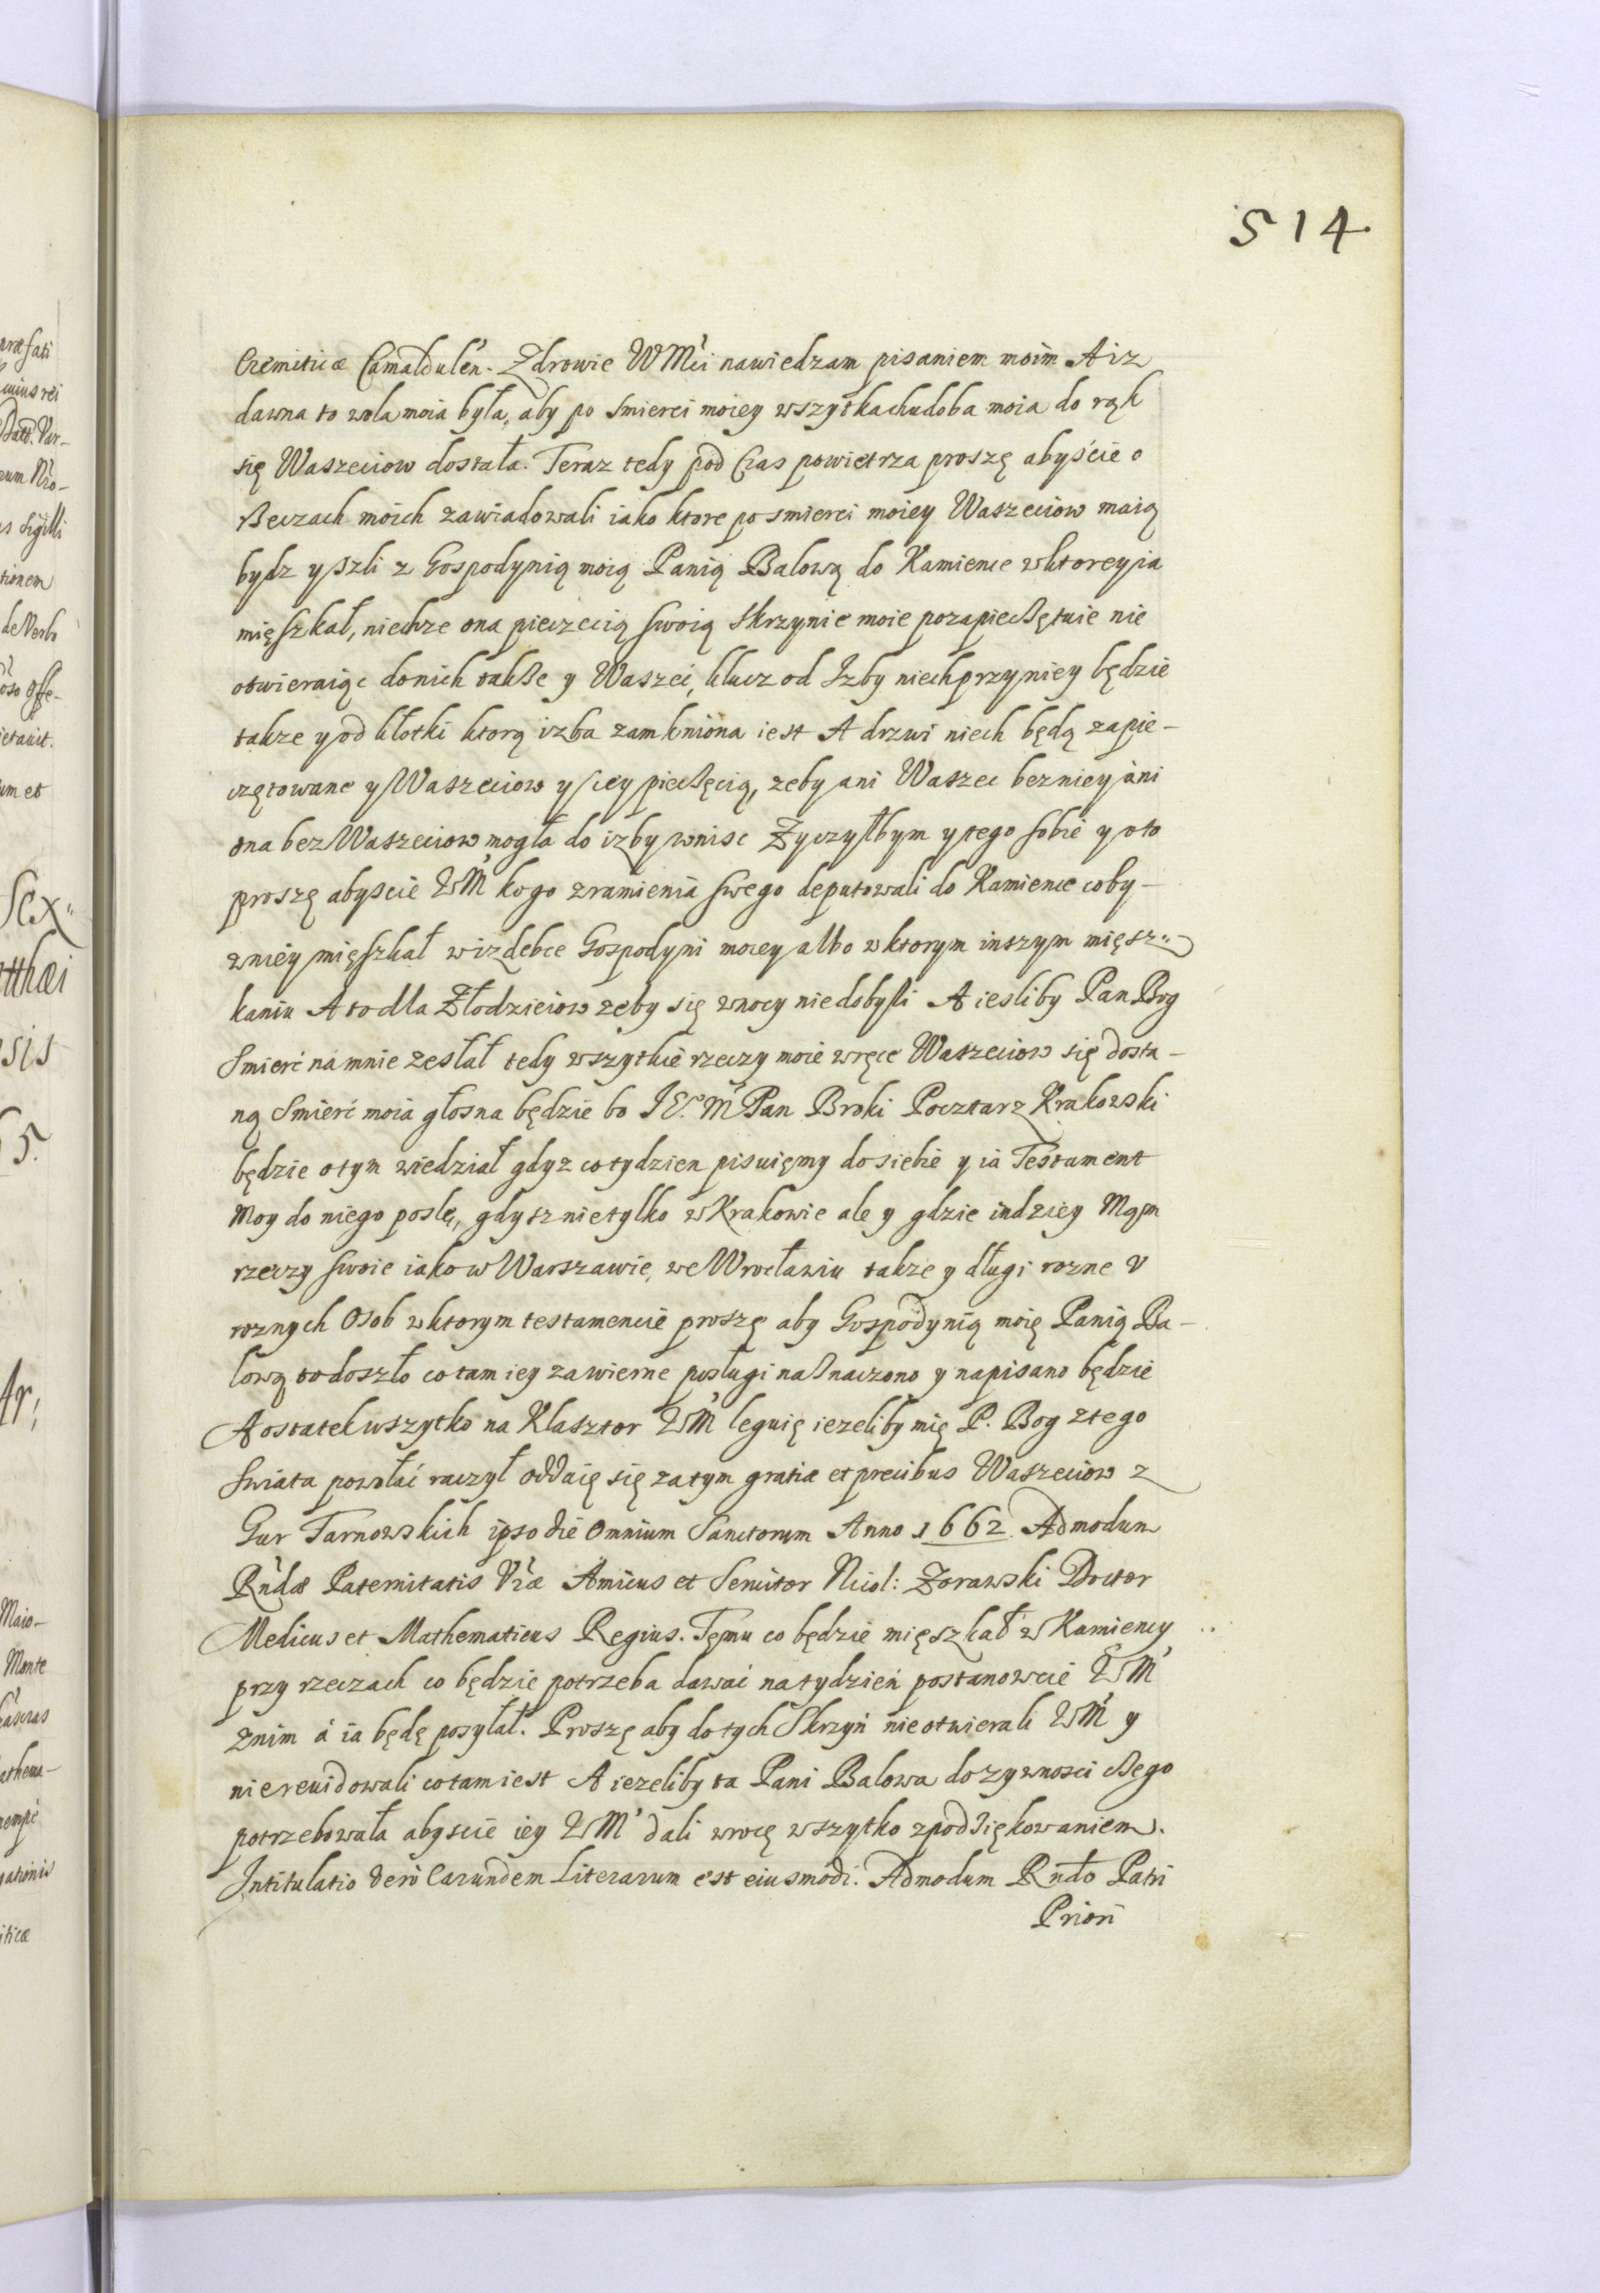 514
Eremiticæ Camaldulen̄. Zdrowie WMci nawiedzam pisaniem moim A iz
dawna to wola moia była, aby po smierci moiey wszytka chudoba moia do rąk
się Waszeciow dostała. Teraz tedy pod Czas powietrza proszę abyście o
Rzeczach moich zawiadowali iako ktore po smierci moiey Waszeciow maią
bydz y szli z Gospodynią moią Panią Balową do Kamience w ktorey ia
mięszkał, niechze ona pieczecią swoią Skrzynie moie pozapieczętuie nie
otwieraiąc do nich takze y Waszeci, klucz od Izby niech przy niey będzie
takze y od kłotki ktorą izba zamkniona iest A drzwi niech będą zapie-
czętowane y Waszeciow y iey pieczęcią, zeby ani Waszec bez niey ani
ona bez Waszeciow mogła do izby wnisc Zyczyłbym y tego sobie y o to
proszę abyscie WM kogo z ramienia swego deputowali do Kamience coby-
w niey mięszkał w izdebce Gospodyni moiey albo w ktorym inszym mięsz-
kaniu A to dla Złodzieiow zeby się w nocy nie dobyli A iesliby Pan Bog
Smierć na mnie zesłał tedy wszytkie rzeczy moie w ręce Waszeciow się dosta-
ną Smierć moia głosna będzie bo IEM Pan Broki Pocztarz Krakowski
będzie o tym wiedział gdyz co tydzien pisuięmy do siebie y ia Testament
Moy do niego poslę, gdysz nie tylko w Krakowie ale y gdzie indziey Mąm
rzeczy swoie iako w Warszawie, we Wrocławiu takze y długi rozne v
roznych Osob w ktorym testamencie proszę aby Gospodynią moię Panią Ba-
lową to doszło co tam iey za wierne posługi naznaczono y napisano będzie
A ostatek wszytko na Klasztor WM leguię iezeliby mię P. Bog z tego
Swiata powołać raczył oddaię się za tym gratiæ et precibus Waszeciow z
Gur Tarnowskich ipso die Omnium Sanctorum Anno 1662 Admodum
Rndæ Paternitatis Vræ Amicus et Seruitor Nicol: Zorawski Doctor
Medicus et Mathematicus Regius. Tęmu co będzie mięszkał w Kamiency
przy rzeczach co będzie potrzeba dawać na tydzień postanowcie WM
z nim á ia będę posyłał. Proszę aby do tych Skrzyń nie otwierali WM y
nie reuidowali co tam iest A iezeliby ta Pani Balowa do zywnosci czego
potrzebowała abyscie iey WM dali wrocę wszytko z podziękowaniem.
Intitulatio verò Earundem Literarum est eiusmodi. Admodum Rndo Patri
Priori